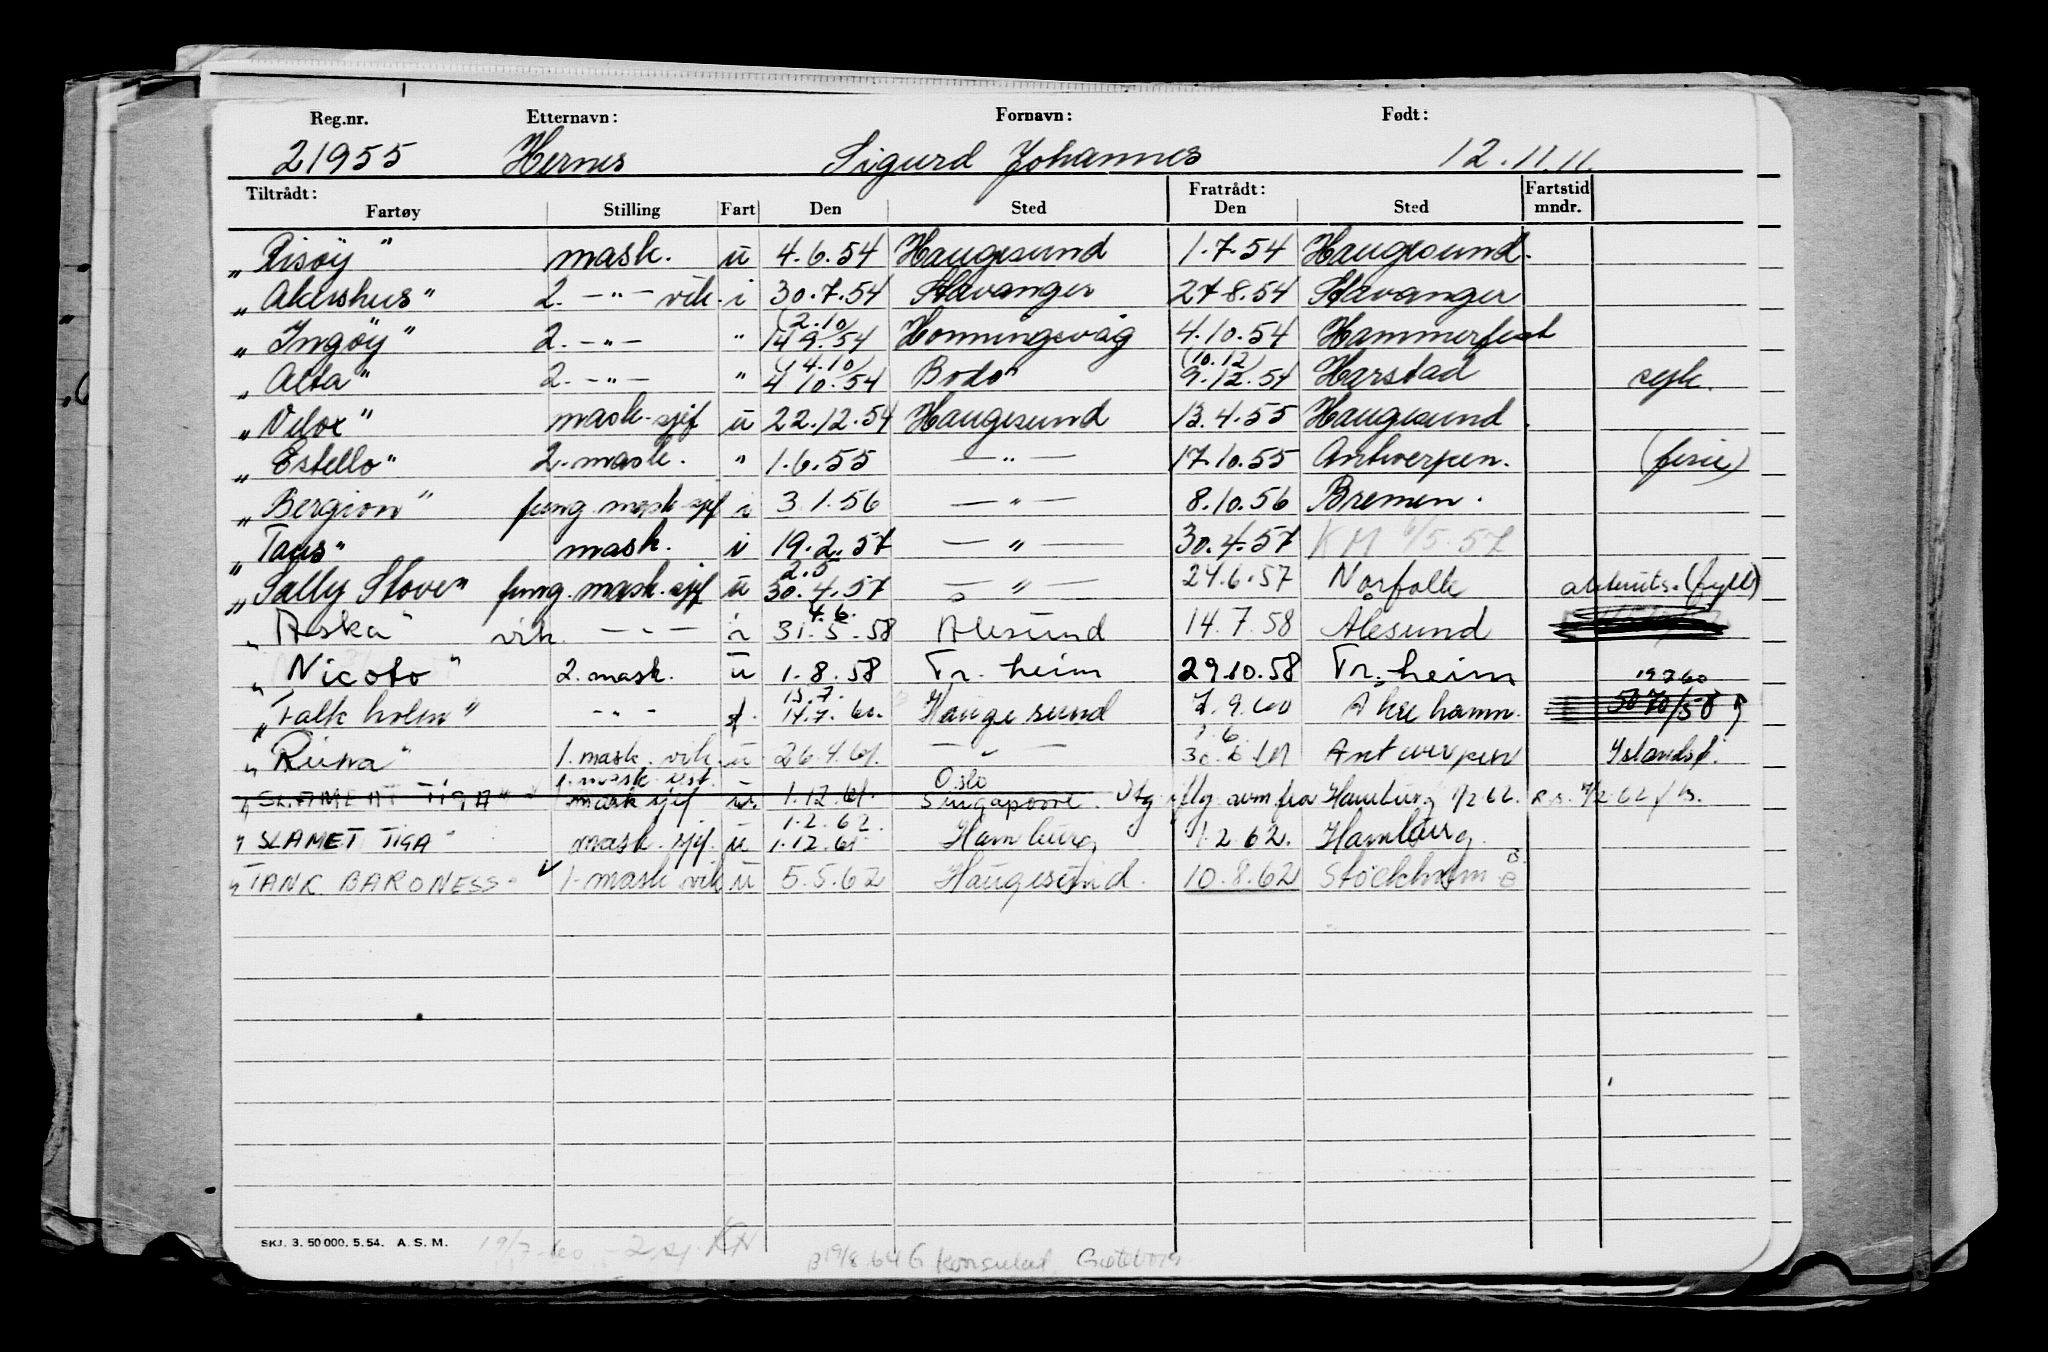 Reg.nr. Etternavn: Fornavn: Født:
21955 Hernes Sigurd Johannes 12.11.11.
Tiltrådt: Fratrådt: Fartstid
Fartøy Stilling Fart Den Sted Den Sted mndr.
„Risøy" mask. u 4.6.54 Haugesund 1.7.54 Haugesund.
„Akershus" 2. —"— vik. i 30.7.54 Stavanger 27.8.54 Stavanger
(2.10)
„Ingøy" 2. —"— " 14.9.54 Honningsvåg 4.10.54 Hammerfest
(4.10) (10.12)
„Alta" 2. —"— " 4.10.54 Bodø 9.12.54 Harstad syk.
„Vilox" mask.sjef u 22.12.54 Haugesund 13.4.55 Haugesund.
„Estello" 2. mask. " 1.6.55 —"— 17.10.55 Antwerpen. (ferie)
„Bergion" fung. mask.sjef i 3.1.56 —"— 8.10.56 Bremen.
„Taus" mask. i 19.2.57 —"— 30.4.57 KM 6/5.57
2.5
„Sally Stove" fung. mask.sjef u 30.4.57 —"— 24.6.57 Norfolk (fyll)
4.6.
„Aska" vik. —"— i 31.5.58 Ålesund 14.7.58 Ålesund
„Nicoto" 2. mask. u 1.8.58 Tr.heim 29.10.58 Tr.heim
15.7. 19760
„Falkholm" —"— f. 14.7.60. Haugesund 7.9.60 Åkrehamn.
„Runa" 1. mask. vik. u 26.4.61. —"— 30.6.61 Antwerpen Islandsf.
1. mask. ass. Oslo
„SLAMET TIGA" mask sjef u. 1.12.61. Singapore. Utg iflg. avm. fra Hamburg 1/2 62.
1.2.62.
„SLAMET TIGA" mask.sjef. u 1.12.61 Hamburg 1.2.62. Hamburg.
„TANK BARONESS" ✓ 1. mask vik u 5.5.62 Haugesund. 10.8.62 Stockholm
SKJ. 3. 50 000. 5.54. A. S. M.
19/7-60 - 2 sj. KH
B 19/8.64 G Konsulat Gøteborg